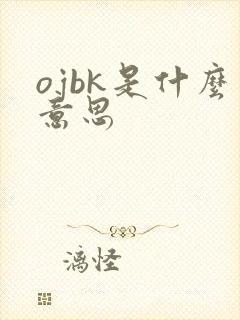 ojbk是什麼
意思
漓怪